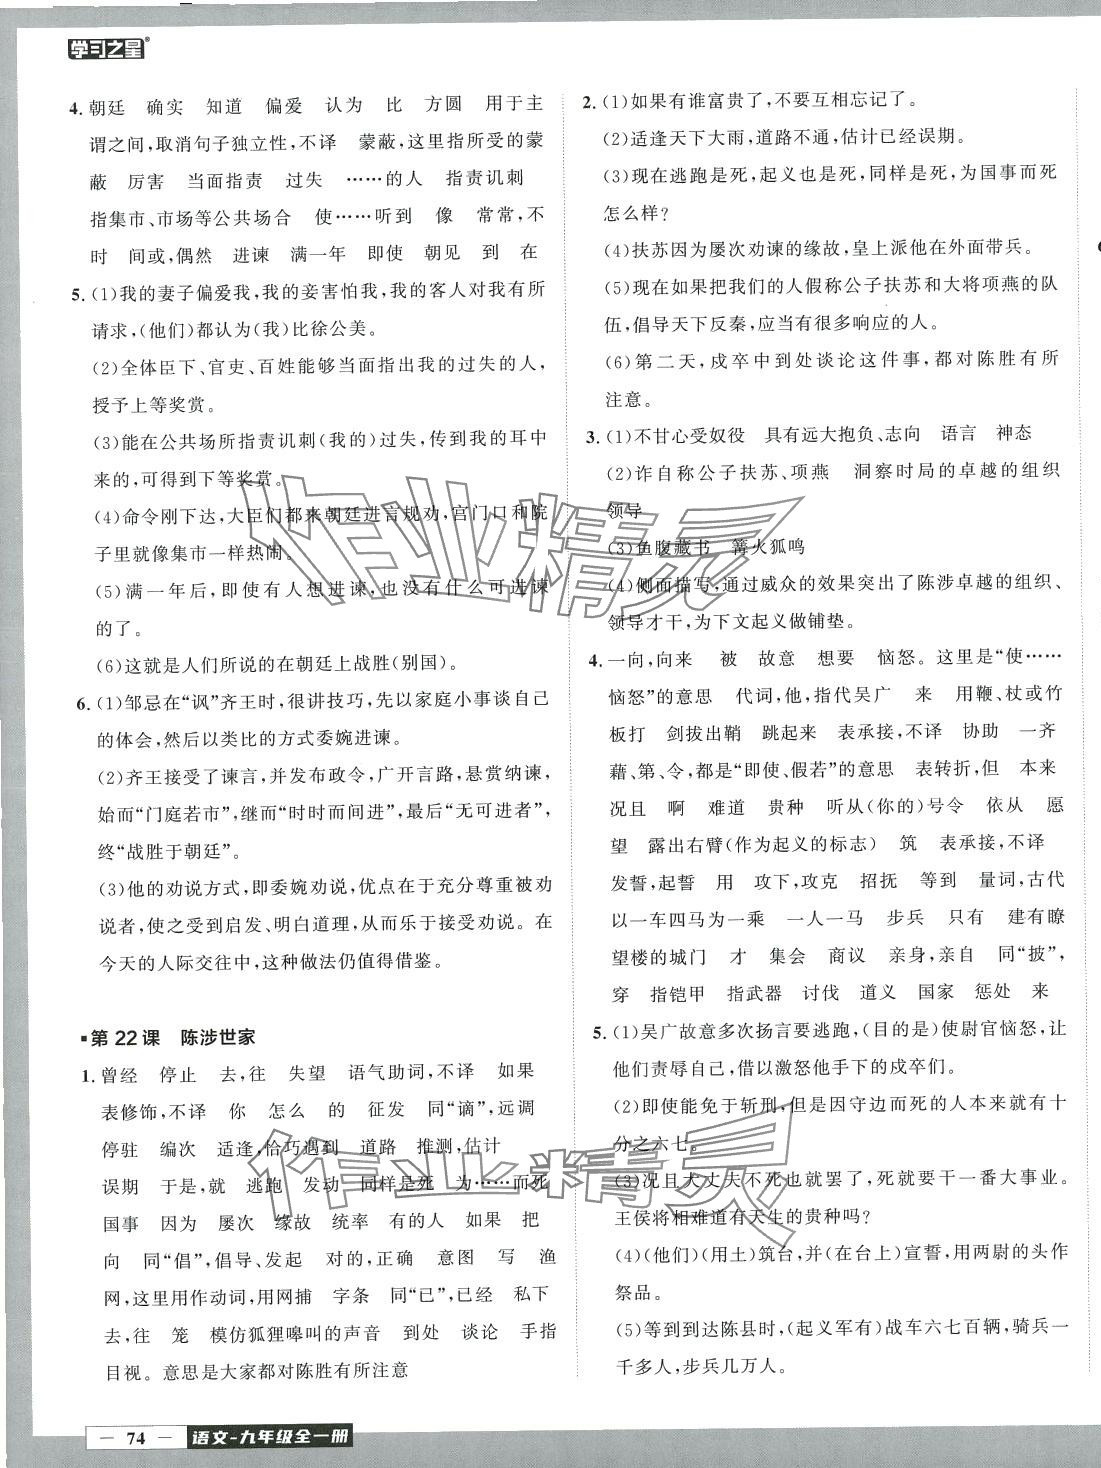 学习之星®
4. 朝廷　确实　知道　偏爱　认为　比　方圆　用于主
谓之间,取消句子独立性,不译　蒙蔽,这里指所受的蒙
蔽　厉害　当面指责　过失　……的人　指责讥刺
指集市、市场等公共场合　使……听到　像　常常,不
时　间或,偶然　进谏　满一年　即使　朝见　到　在
5. (1)我的妻子偏爱我,我的妾害怕我,我的客人对我有所
请求,(他们)都认为(我)比徐公美。
(2)全体臣下、官吏、百姓能够当面指出我的过失的人,
授予上等奖赏。
(3)能在公共场所指责讥刺(我的)过失,传到我的耳中
来的,可得到下等奖赏。
(4)命令刚下达,大臣们都来朝廷进言规劝,宫门口和院
子里就像集市一样热闹。
(5)满一年后,即使有人想进谏,也没有什么可进谏
的了。
(6)这就是人们所说的在朝廷上战胜(别国)。
6. (1)邹忌在“讽”齐王时,很讲技巧,先以家庭小事谈自己
的体会,然后以类比的方式委婉进谏。
(2)齐王接受了谏言,并发布政令,广开言路,悬赏纳谏,
始而“门庭若市”,继而“时时而间进”,最后“无可进者”,
终“战胜于朝廷”。
(3)他的劝说方式,即委婉劝说,优点在于充分尊重被劝
说者,使之受到启发、明白道理,从而乐于接受劝说。在
今天的人际交往中,这种做法仍值得借鉴。
第 22 课　陈涉世家
1. 曾经　停止　去,往　失望　语气助词,不译　如果
表修饰,不译　你　怎么　的　征发　同“谪”,远调
停驻　编次　适逢,恰巧遇到　道路　推测,估计
误期　于是,就　逃跑　发动　同样是死　为……而死
国事　因为　屡次　缘故　统率　有的人　如果　把
向　同“倡”,倡导、发起　对的,正确　意图　写　渔
网,这里用作动词,用网捕　字条　同“已”,已经　私下
去,往　笼　模仿狐狸嗥叫的声音　到处　谈论　手指
目视。意思是大家都对陈胜有所注意
2. (1)如果有谁富贵了,不要互相忘记了。
(2)适逢天下大雨,道路不通,估计已经误期。
(3)现在逃跑是死,起义也是死,同样是死,为国事而死
怎么样?
(4)扶苏因为屡次劝谏的缘故,皇上派他在外面带兵。
(5)现在如果把我们的人假称公子扶苏和大将项燕的队
伍,倡导天下反秦,应当有很多响应的人。
(6)第二天,戍卒中到处谈论这件事,都对陈胜有所
注意。
3. (1)不甘心受奴役　具有远大抱负、志向　语言　神态
(2)诈自称公子扶苏、项燕　洞察时局的卓越的组织
领导
(3)鱼腹藏书　篝火狐鸣
(4)侧面描写,通过威众的效果突出了陈涉卓越的组织、
领导才干,为下文起义做铺垫。
4. 一向,向来　被　故意　想要　恼怒。这里是“使……
恼怒”的意思　代词,他,指代吴广　来　用鞭、杖或竹
板打　剑拔出鞘　跳起来　表承接,不译　协助　一齐
藉、第、令,都是“即使、假若”的意思　表转折,但　本来
况且　啊　难道　贵种　听从(你的)号令　依从　愿
望　露出右臂(作为起义的标志)　筑　表承接,不译
发誓,起誓　用　攻下,攻克　招抚　等到　量词,古代
以一车四马为一乘　一人一马　步兵　只有　建有瞭
望楼的城门　才　集会　商议　亲身,亲自　同“披”,
穿　指铠甲　指武器　讨伐　道义　国家　惩处　来
5. (1)吴广故意多次扬言要逃跑,(目的是)使尉官恼怒,让
他们责辱自己,借以激怒他手下的戍卒们。
(2)即使能免于斩刑,但是因守边而死的人本来就有十
分之六七。
(3)况且大丈夫不死也就罢了,死就要干一番大事业。
王侯将相难道有天生的贵种吗?
(4)(他们)(用土)筑台,并(在台上)宣誓,用两尉的头作
祭品。
(5)等到到达陈县时,(起义军有)战车六七百辆,骑兵一
千多人,步兵几万人。
作业精灵
作业精灵
— 74 —　语文-九年级全一册